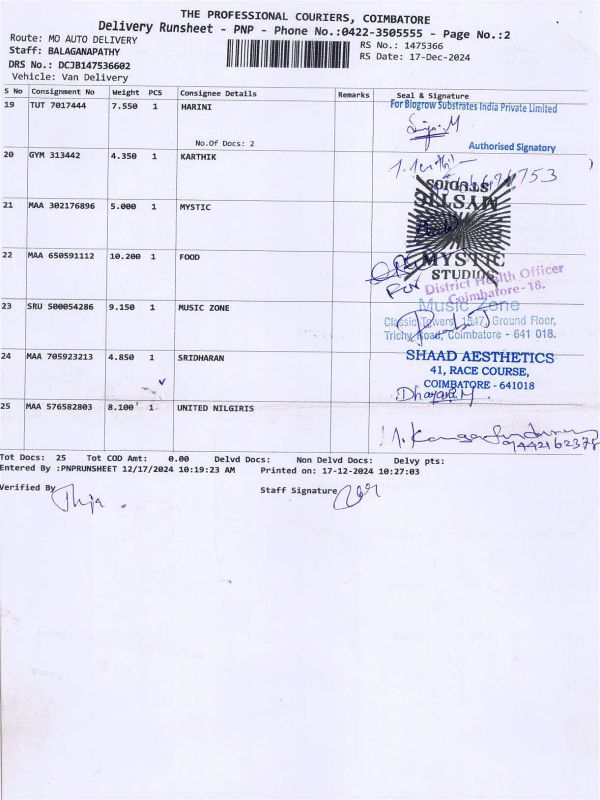 THE PROFESSIONAL COURIERS, COIMBATORE
Delivery Runsheet - PNP - Phone No.:0422-3505555 - Page No.:2
Route: MO AUTO DELIVERY
RS No.: 1475366
Staff: BALAGANAPATHY
RS Date: 17-Dec-2024
DRS No.: DCJB147536602
Vehicle: Van Delivery
S No Consignment No Weight PCS Consignee Details Remarks Seal & Signature
19 TUT 7017444 7.550 1 HARINI
For Biogrow Substrates India Private Limited
No.Of Docs: 2
Authorised Signatory
20 GYM 313442 4.350 1 KARTHIK
21 MAA 302176896 5.000 1 MYSTIC
MYSTIC
STUDIOS
22 MAA 650591112 10.200 1 FOOD
MYSTIC
STUDIOS
For District Health Officer
Coimbatore-18.
23 SRU 500054286 9.150 1 MUSIC ZONE
Music Zone
Classic Towers, 1547, Ground Floor,
Trichy Road, Coimbatore - 641 018.
24 MAA 705923213 4.850 1 SRIDHARAN
SHAAD AESTHETICS
41, RACE COURSE,
COIMBATORE - 641018
25 MAA 576582803 8.100 1 UNITED NILGIRIS
9442162378
Tot Docs: 25 Tot COD Amt: 0.00 Delvd Docs: Non Delvd Docs: Delvy pts:
Entered By :PNPRUNSHEET 12/17/2024 10:19:23 AM Printed on: 17-12-2024 10:27:03
Verified By
Staff Signature